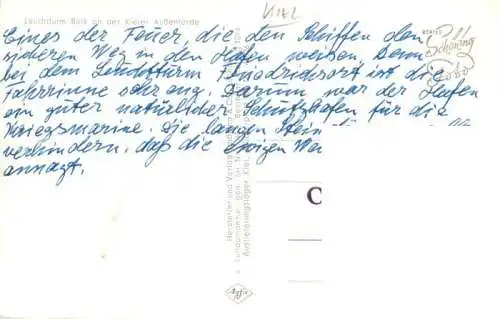 Leuchtturm Bülk an der Kieler Außenförde
KIEL
ECHTES Foto
Eines der Feuer, die den Schiffen den
sicheren Weg in den Hafen weisen. Denn
bei dem Leuchtturm Friedrichsort ist die
Fahrrinne sehr eng. Darum war der Hafen
ein guter natürlicher Schutzhafen für die
Kriegsmarine. Die langen Stein
verhindern, daß die ewigen We
annagt.
Hersteller und Verlag
Lundgmannfr. gen. SH Nr.
Auslieferungslager Kiel,
C
Agfa